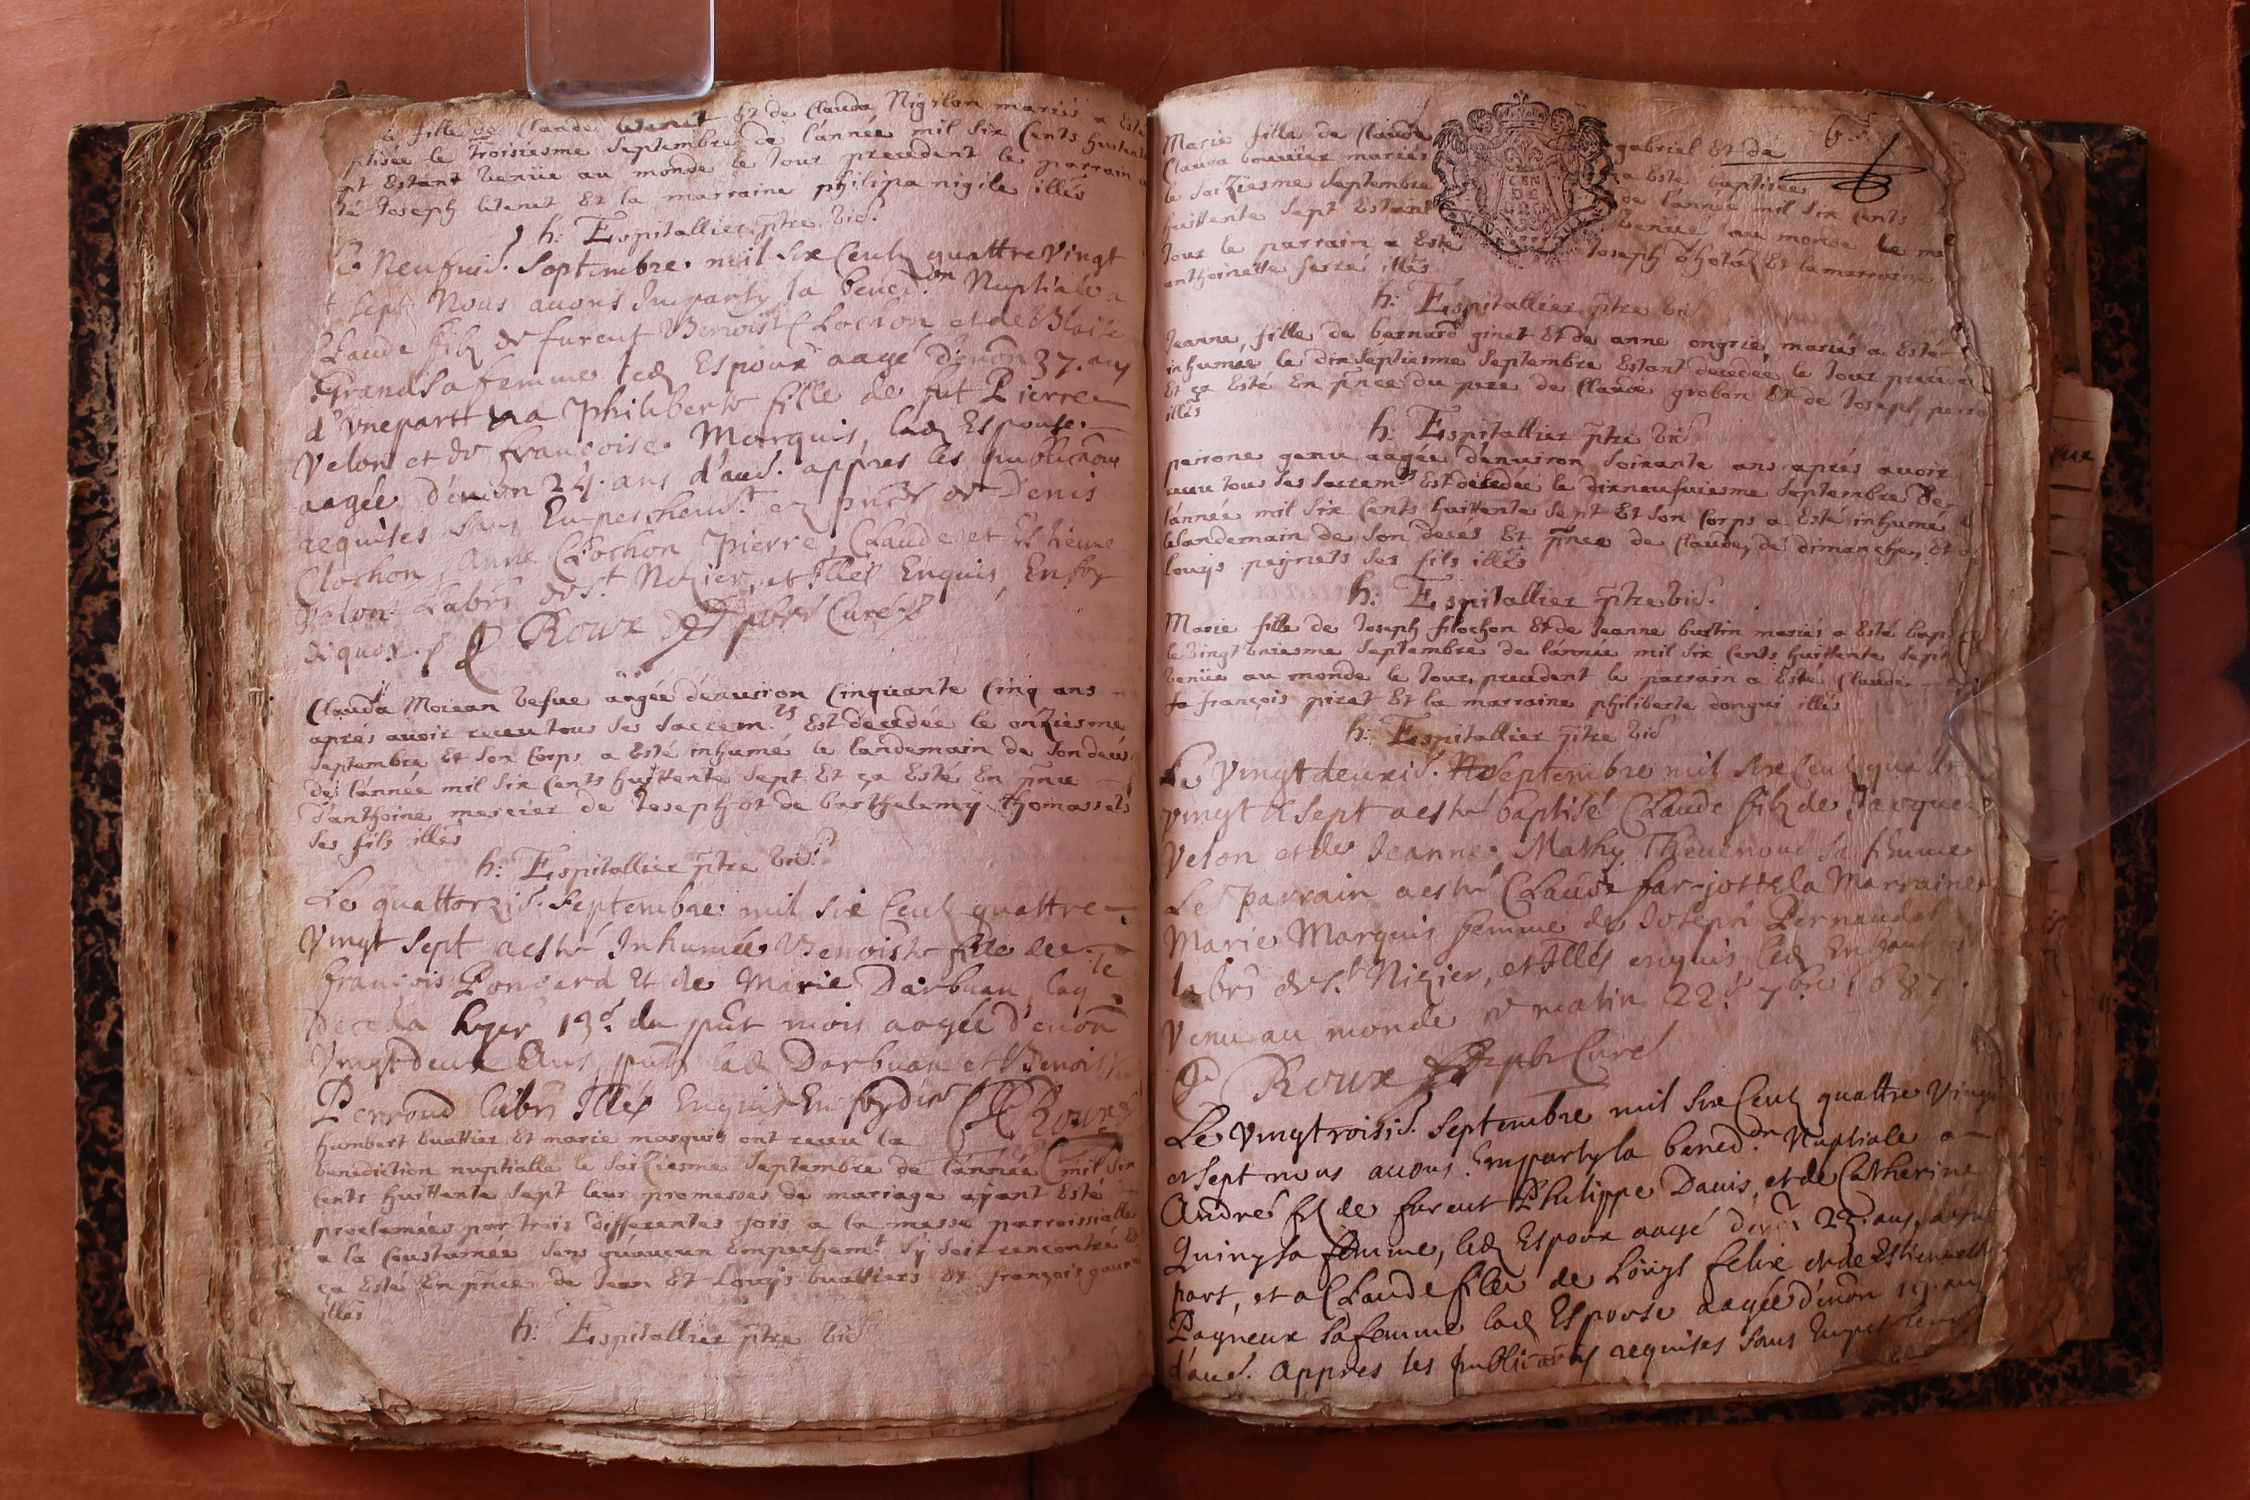 fille de Claude et de Clauda Nigilon mariés a Esté
ptisée le troisiesme Septembre de l'année mil six Cents huittante
pt Estant Venüe au monde le Jour precedent le parrain a
té Joseph et la marraine philipa nigile illés
h: Espitallier p̃tre Vic.
Le Neufuie. Septembre. mil six Centz quattre Vingt
sept Nous auons Imparty la bened.on Nuptiale a
Claude filz de furent Benoist Clochon et de Blaise
Grand sa femme led Espoux aagé d'enuon 37. ans
d'Vne part et a Philiberte fille de fut Pierre
Velon et de françoise Marquis, lad Espouse
aagée d'enuon 24. ans d'aud. appres les publicaons
requises sans Empeschemt. en pñce de Denis
Clochon, Anne Clochon Pierre, Claude et Estienne
Velon. Labrs de St. Nizier, et Illés Enquis, En foy
dequoy. Roux Curé
Clauda Moiran Vefue aagée d'enuiron Cinquante Cinq ans
aprés auoir receu tous ses sacrem.ts Est decedée le onziesme
Septembre Et son Corps a Esté inhumé le landemain de son decés
de l'année mil six Cents huittante sept Et ça Esté En p̃nce
d'anthoine mercier de Joseph et de barthelemy thomassets
ses fils illés
h: Espitallier p̃tre Vic.
Le quattorzie. Septembre. mil six Centz quattre
Vingt sept a esté Inhumée Benoiste fille de
françois Ponsard et de Marie Darbuan laqle
deceda hyer 13e. du p̃nt mois aagée d'enuon
Vingt deux Ans, p̃nts lad Darbuan et Benoist
Perroud labrs Illés Enquis En foy de Roux
humbert buattier Et marie marquis ont receu la
benediction nuptialle le saiziesme Septembre de l'année mil six
Cents huittante sept leur promesses de mariage ayant Esté
proclamées par trois differentes fois a la messe parroissialle
a la Coustumée sans qu'aucun Empechem.t s'y soit rencontré Et
ça Esté En p̃nce de Jean Et Louys buattiers et françois
illés
h: Espitallier p̃tre Vic
Marie fille de Claude gabriel Et de
Clauda bouuier mariés a Esté baptisée
le saiziesme Septembre de l'année mil six Cents
huittante sept Estant Venüe au monde le me
Jour le parrain a Esté Joseph Et la marraine
anthoinette illés
h: Espitallier p̃tre Vic
Jeanne fille de bernard ginet Et de anne ongrie mariés a Esté
inhumée le dix septiesme Septembre Estant decedée le Jour preced
Et ça Esté En p̃nce du pere de Claude grobon Et de Joseph
illés
h: Espitallier p̃tre Vic
perrone genu aagée d'enuiron soixante ans aprés auoir
receu tous ses sacrem.ts Est decedée le dixneufuiesme Septembre de
l'année mil six Cents huittante sept Et son Corps a Esté inhumé
le landemain de son decés Et p̃nce de Claude, de dimanche, Et de
louys peyriets ses fils illés
h: Espitallier p̃tre Vic.
Marie fille de Joseph filochon Et de Jeanne buttin mariés a Esté bap
le Vingt Uniesme Septembre de l'année mil six Cents huittante sept
Venüe au monde le Jour precedent le parrain a Esté Claude
françois pizet Et la marraine philiberte dongui illés
h: Espitallier p̃tre Vic
Le Vingt deuxie. Septembre mil six Centz quattre
vingt et sept a esté baptisé Claude filz de Jacques
Velon et de Jeanne Mathy Theuenoud sa femme
Le parrain a esté Claude farjot et la Marraine
Marie Marquis femme de Joseph Pernaudet
labrs de St. Nizier, et Illés enquis
Venu au monde ce matin 22e 7bre 1687.
Roux Curé
Le Vingt roisie. Septembre mil six Centz quattre Vingt
et sept nous auons Imparty la bened.on Nuptiale a
André filz de furent Philippe Dauis, et de Catherine
Quiny sa femme, led Espoux aagé d'enuon 22. ans, d'vne
part, et a Claude fille de Louys felix et de Estiennette
Pagneux sa femme lad Espouse aagée d'enuon 19. ans
d'aud. appres les publicaons requises sans Empeschemt